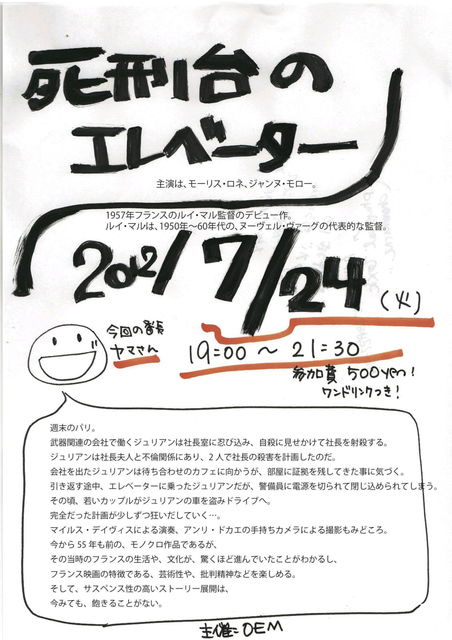 死刑台の
エレベーター
主演は、モーリス・ロネ、ジャンヌ・モロー。
1957年フランスのルイ・マル監督のデビュー作。
ルイ・マルは、1950年〜60年代の、ヌーヴェル・ヴァーグの代表的な監督。
2012/7/24(火)
今回の番長
ヤマさん
19:00 〜 21:30
参加費 500yen!
ワンドリンクつき!
週末のパリ。
武器関連の会社で働くジュリアンは社長室に忍び込み、自殺に見せかけて社長を射殺する。
ジュリアンは社長夫人と不倫関係にあり、2人で社長の殺害を計画したのだ。
会社を出たジュリアンは待ち合わせのカフェに向かうが、部屋に証拠を残してきた事に気づく。
引き返す途中、エレベーターに乗ったジュリアンだが、警備員に電源を切られて閉じ込められてしまう。
その頃、若いカップルがジュリアンの車を盗みドライブへ。
完全だった計画が少しずつ狂いだしていく…。
マイルス・デイヴィスによる演奏、アンリ・ドカエの手持ちカメラによる撮影もみどころ。
今から55年も前の、モノクロ作品であるが、
その当時のフランスの生活や、文化が、驚くほど進んでいたことがわかるし、
フランス映画の特徴である、芸術性や、批判精神などを楽しめる。
そして、サスペンス性の高いストーリー展開は、
今みても、飽きることがない。
主催:OEM